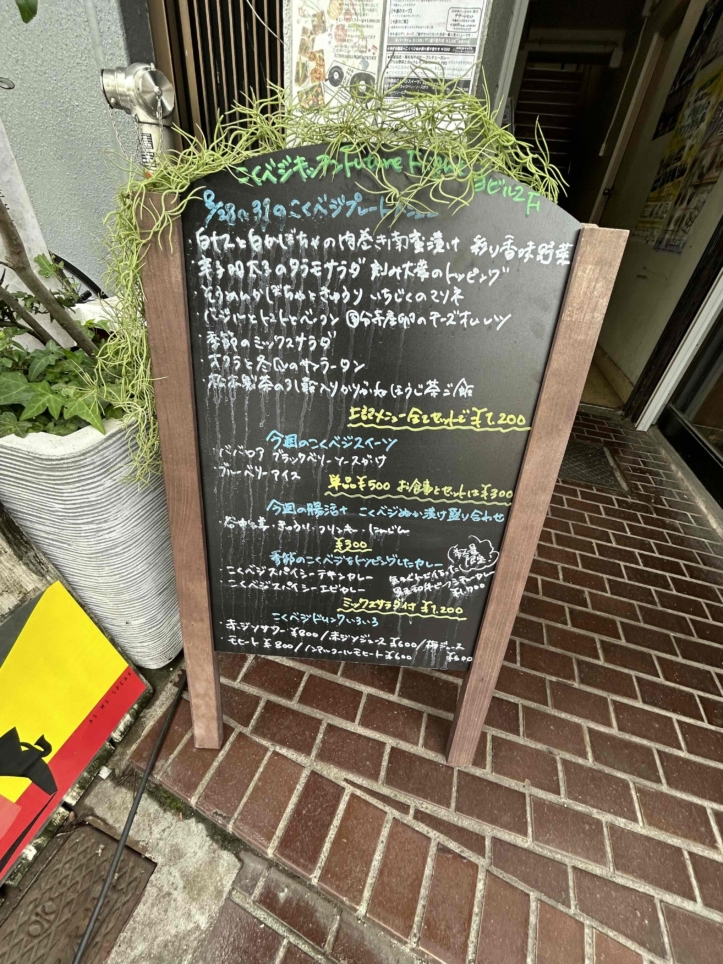 こくベジキッチン Future F ビル2F
8/28〜31のこくベジプレートメニュー
・白ナスと白かぼちゃの肉巻き南蛮漬け 彩り香味野菜
・のタラモサラダ 刻み大葉のトッピング
・そうめんかぼちゃときゅうり いちじくのマリネ
・バジルとトマトとベーコン 国分寺産卵のチーズオムレツ
・季節のミックスサラダ
・オクラと冬瓜のサンラータン
・松本製茶の ほうじ茶ご飯
上記メニュー全てセットで ¥1,200
今週のこくベジスイーツ
・ババロア ブラックベリーソースがけ
・ブルーベリーアイス
単品¥500 お食事とセットは¥300
今週の腸活+ こくベジぬか漬け盛り合わせ
・きゅうり・ズッキーニ・にんじん
¥300
季節のこくベジをトッピングしたカレー
・こくベジスパイシーチキンカレー
・こくベジスパイシーエビカレー
ミックスサラダ付 ¥1,200
こくベジドリンクいろいろ
・赤ジソサワー ¥800/赤ジソジュース ¥600/梅ジュース
・モヒート ¥800/ノンアルコールモヒート ¥600/ ¥600
AS WE SPEAK